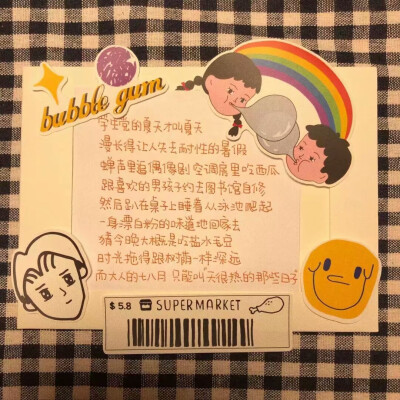 bubble gum
学生党的夏天才叫夏天
漫长得让人失去耐性的暑假
蝉声里追偶像剧 空调房里吃西瓜
跟喜欢的男孩子约去图书馆自修
然后趴在桌子上睡着 从泳池爬起
一身漂白粉的味道地回家去
猜今晚大概是吃盐水毛豆
时光拖得跟树荫一样深远
而大人的七八月 只能叫“天很热的那些日子”
$5.8 SUPERMARKET